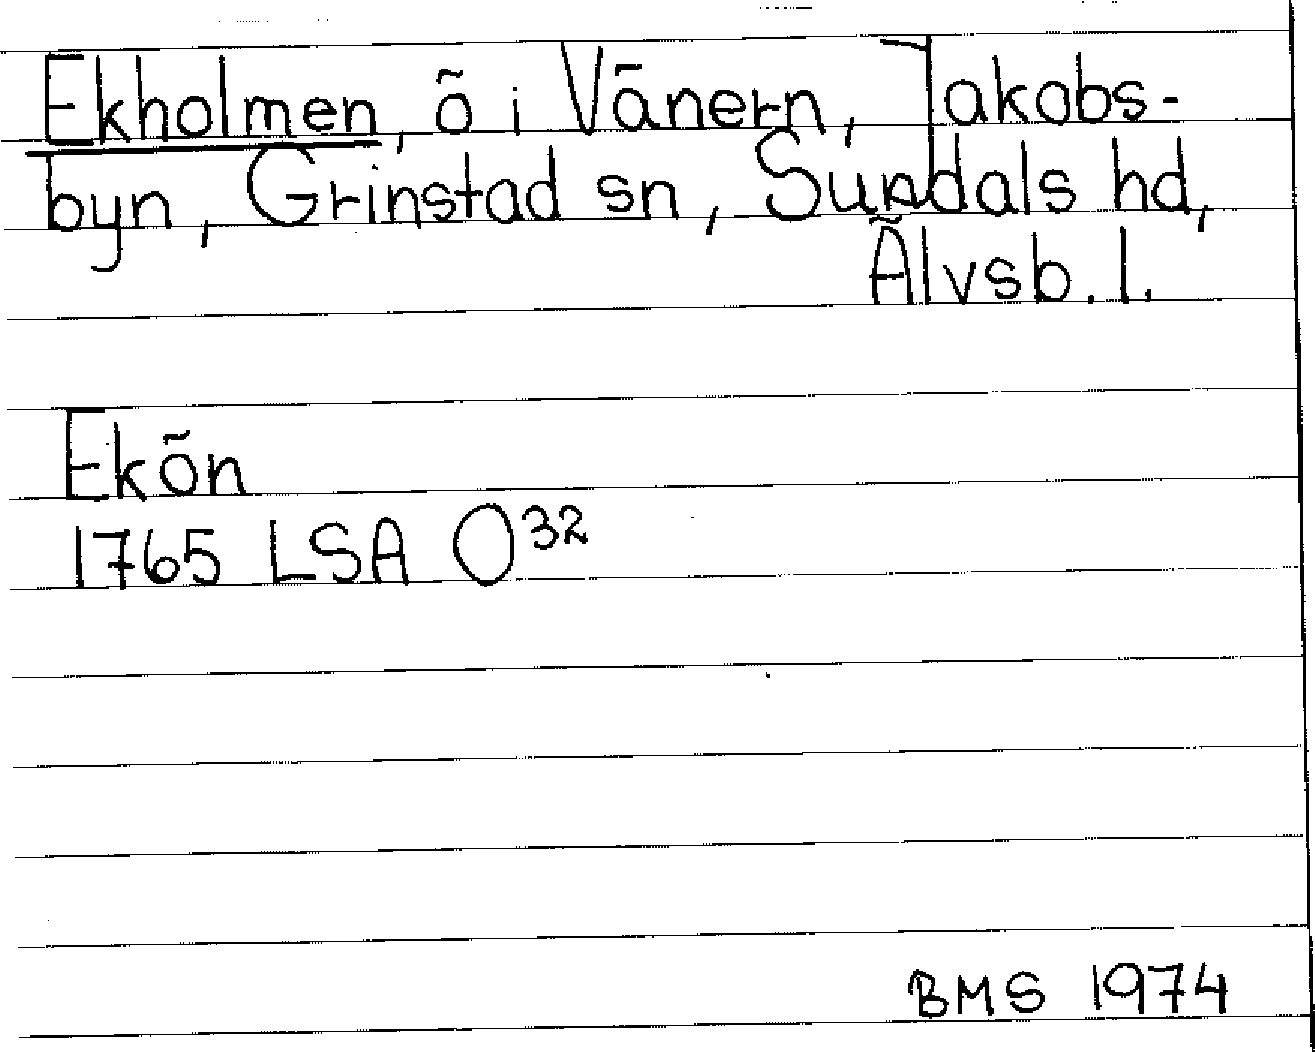 Ekholmen, ö i Vänern, Jakobs-
byn, Grinstad sn, Sundals hd,
Älvsb. l.
Ekön
1765 LSA O³²
BMS 1974